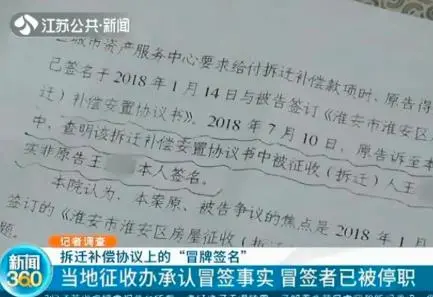 江苏公共·新闻
城市资产服务中心要求给付拆迁补偿款项时,原告得
已签名于2018年1月14日与被告签订《淮安市淮安区
迁)补偿安置协议书》。2018年7月10日,原告诉至本
中,查明该拆迁补偿安置协议书中被征收(拆迁)人王
实非原告王 本人签名。
本院认为,本案原、被告争议的焦点是2018年1月
签订的《淮安市淮安区房屋征收(
题。
记者调查
拆迁补偿协议上的“冒牌签名”
新闻360
当地征收办承认冒签事实 冒签者已被停职